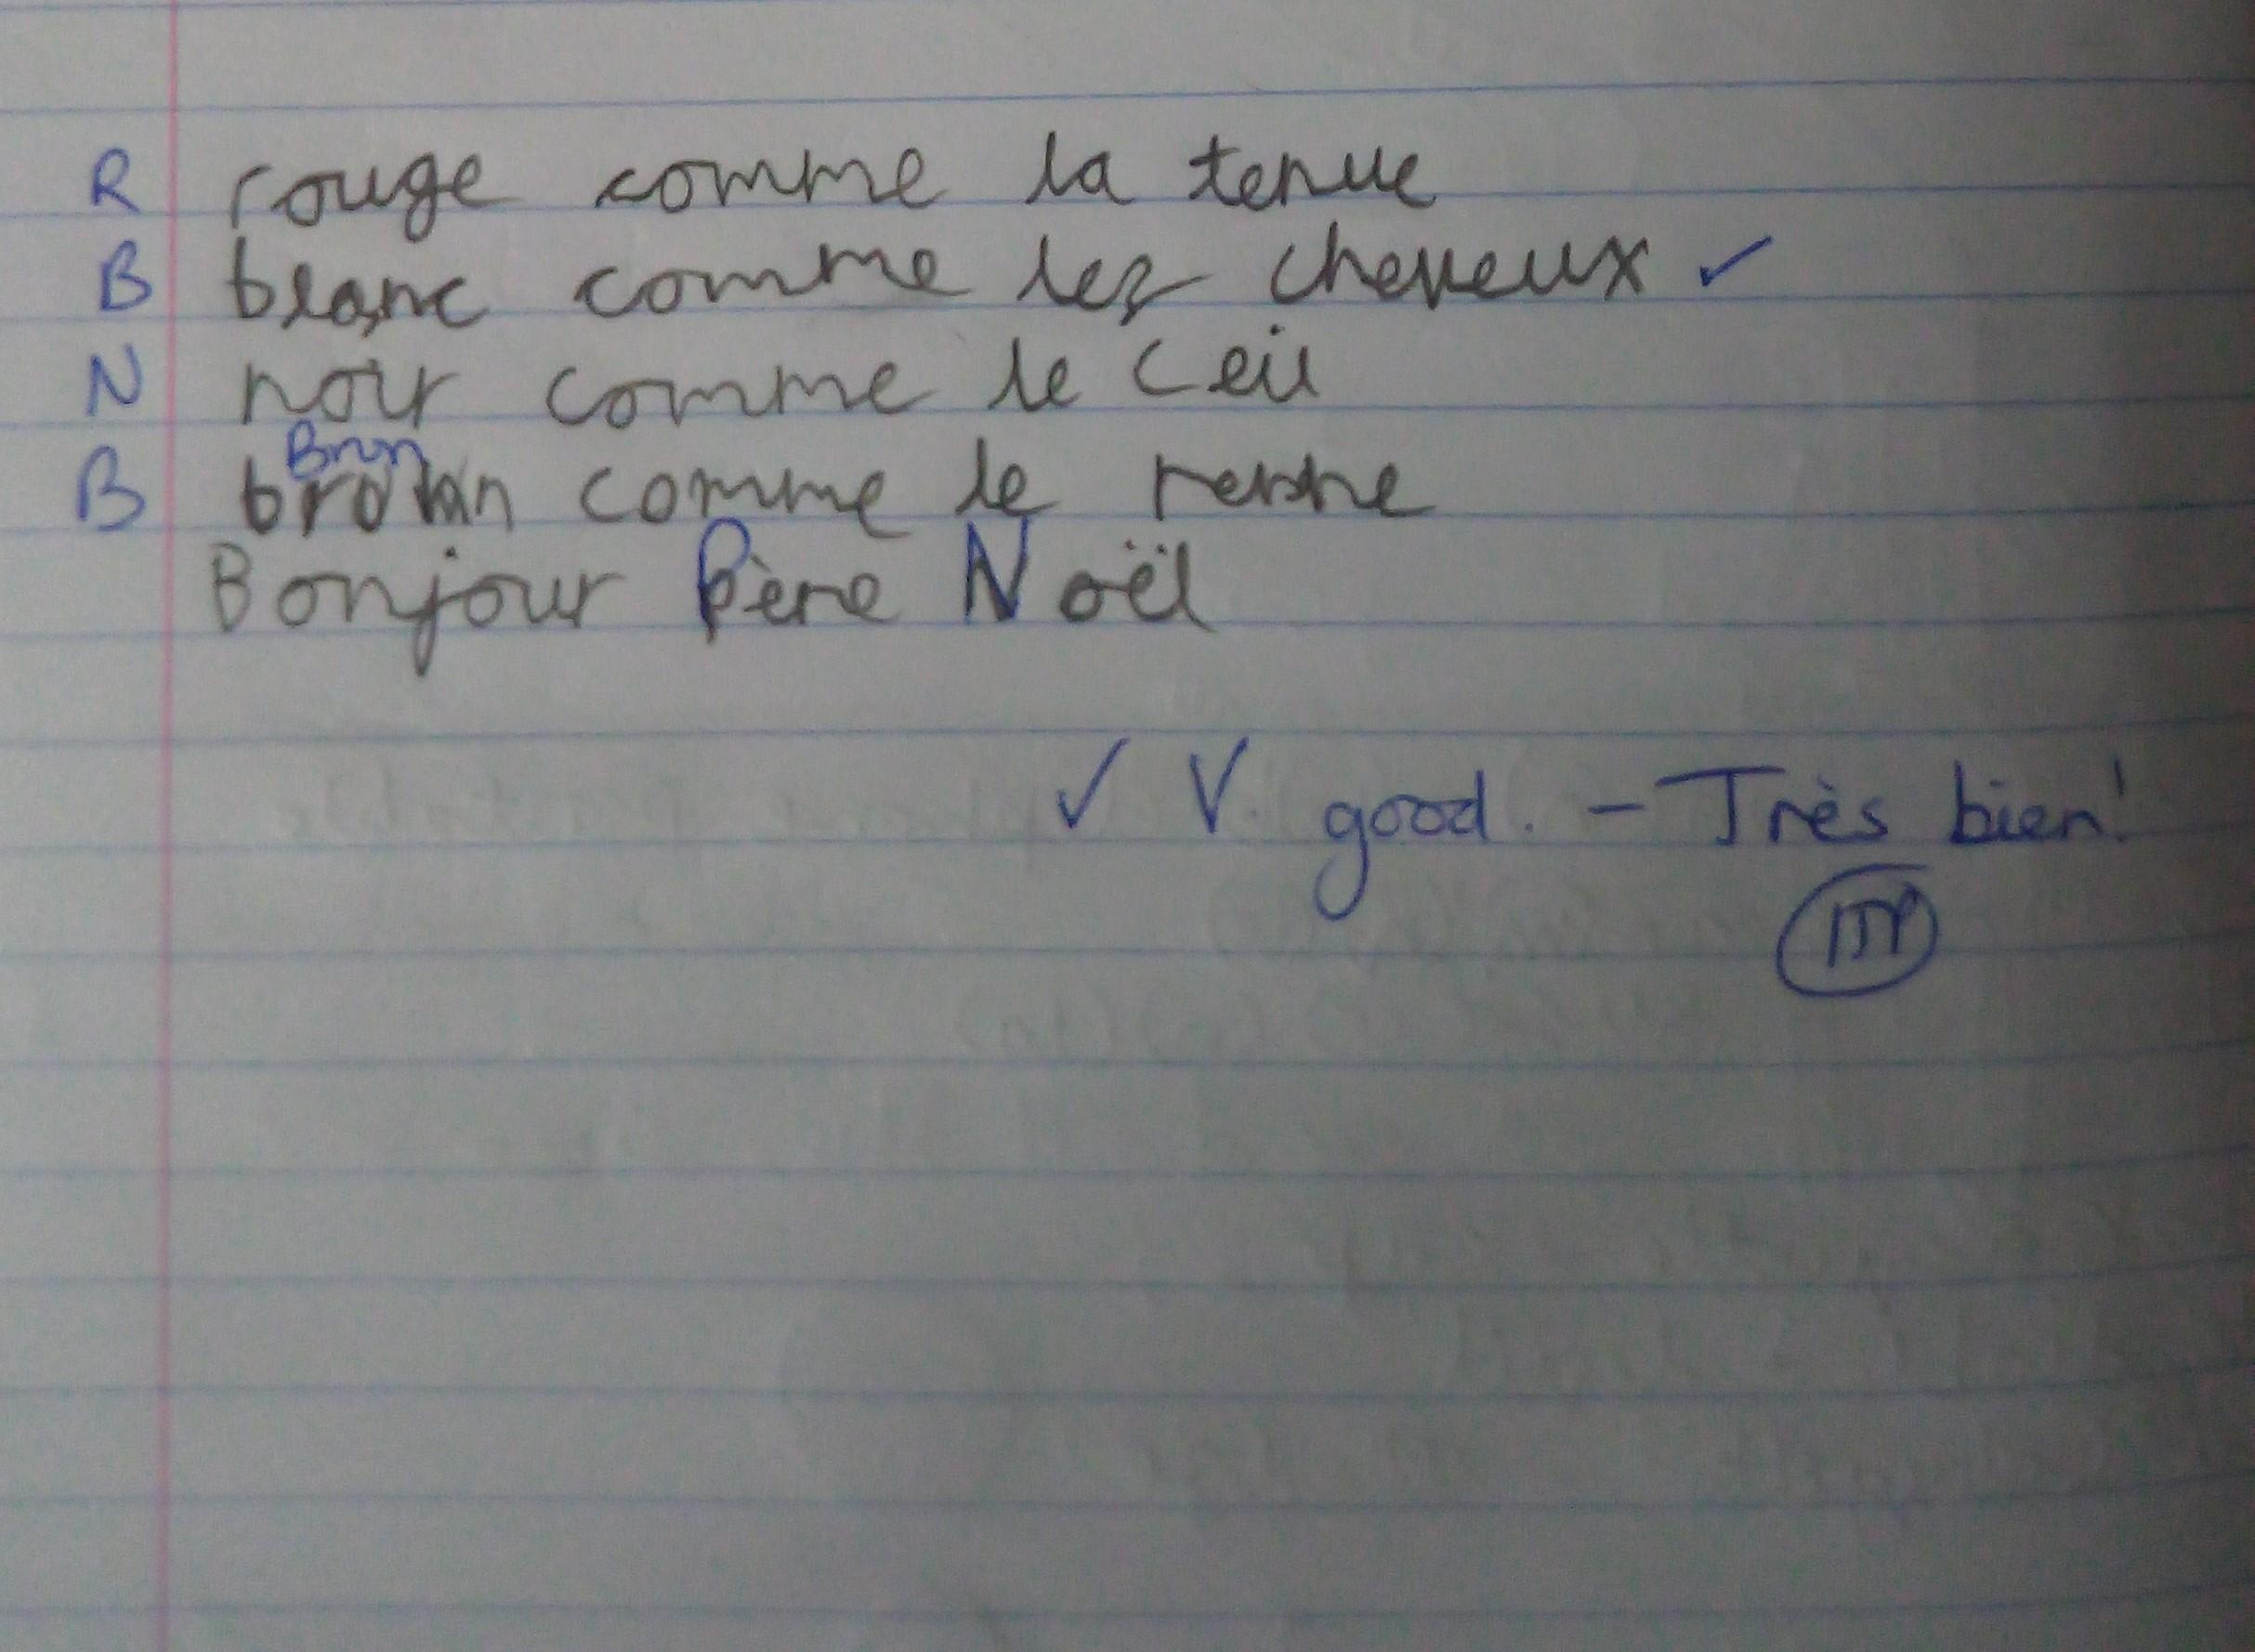 R rouge comme la tenue
B blanc comme les cheveux ✓
N noir comme le ceil
Brun
B comme le renne
Bonjour Père Noël
✓ V. good. - Très bien!